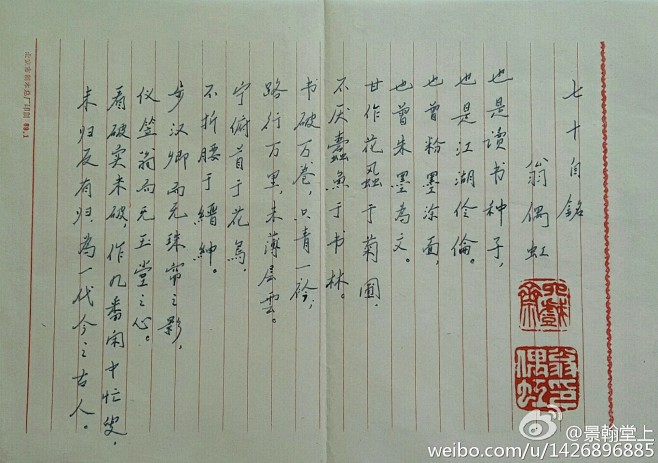 七十自銘
翁偶虹
也是读书种子,
也是江湖伶倫。
也曾粉墨涂面,
也曾朱墨为文。
甘作花蝨于菊圃,
不厌蠹魚于书林。
书破万卷,只青一衿;
路行万里,未薄层雲。
宁俯首于花鳥,
不折腰于縉紳。
步汉卿而无珠帘之影,
仪笠翁而无玉堂之心。
看破实未破,作几番闲中忙叟,
未归反有归,为一代今之古人。
六戲齋
翁印偶虹
89.1
@景翰堂上
weibo.com/u/1426896885